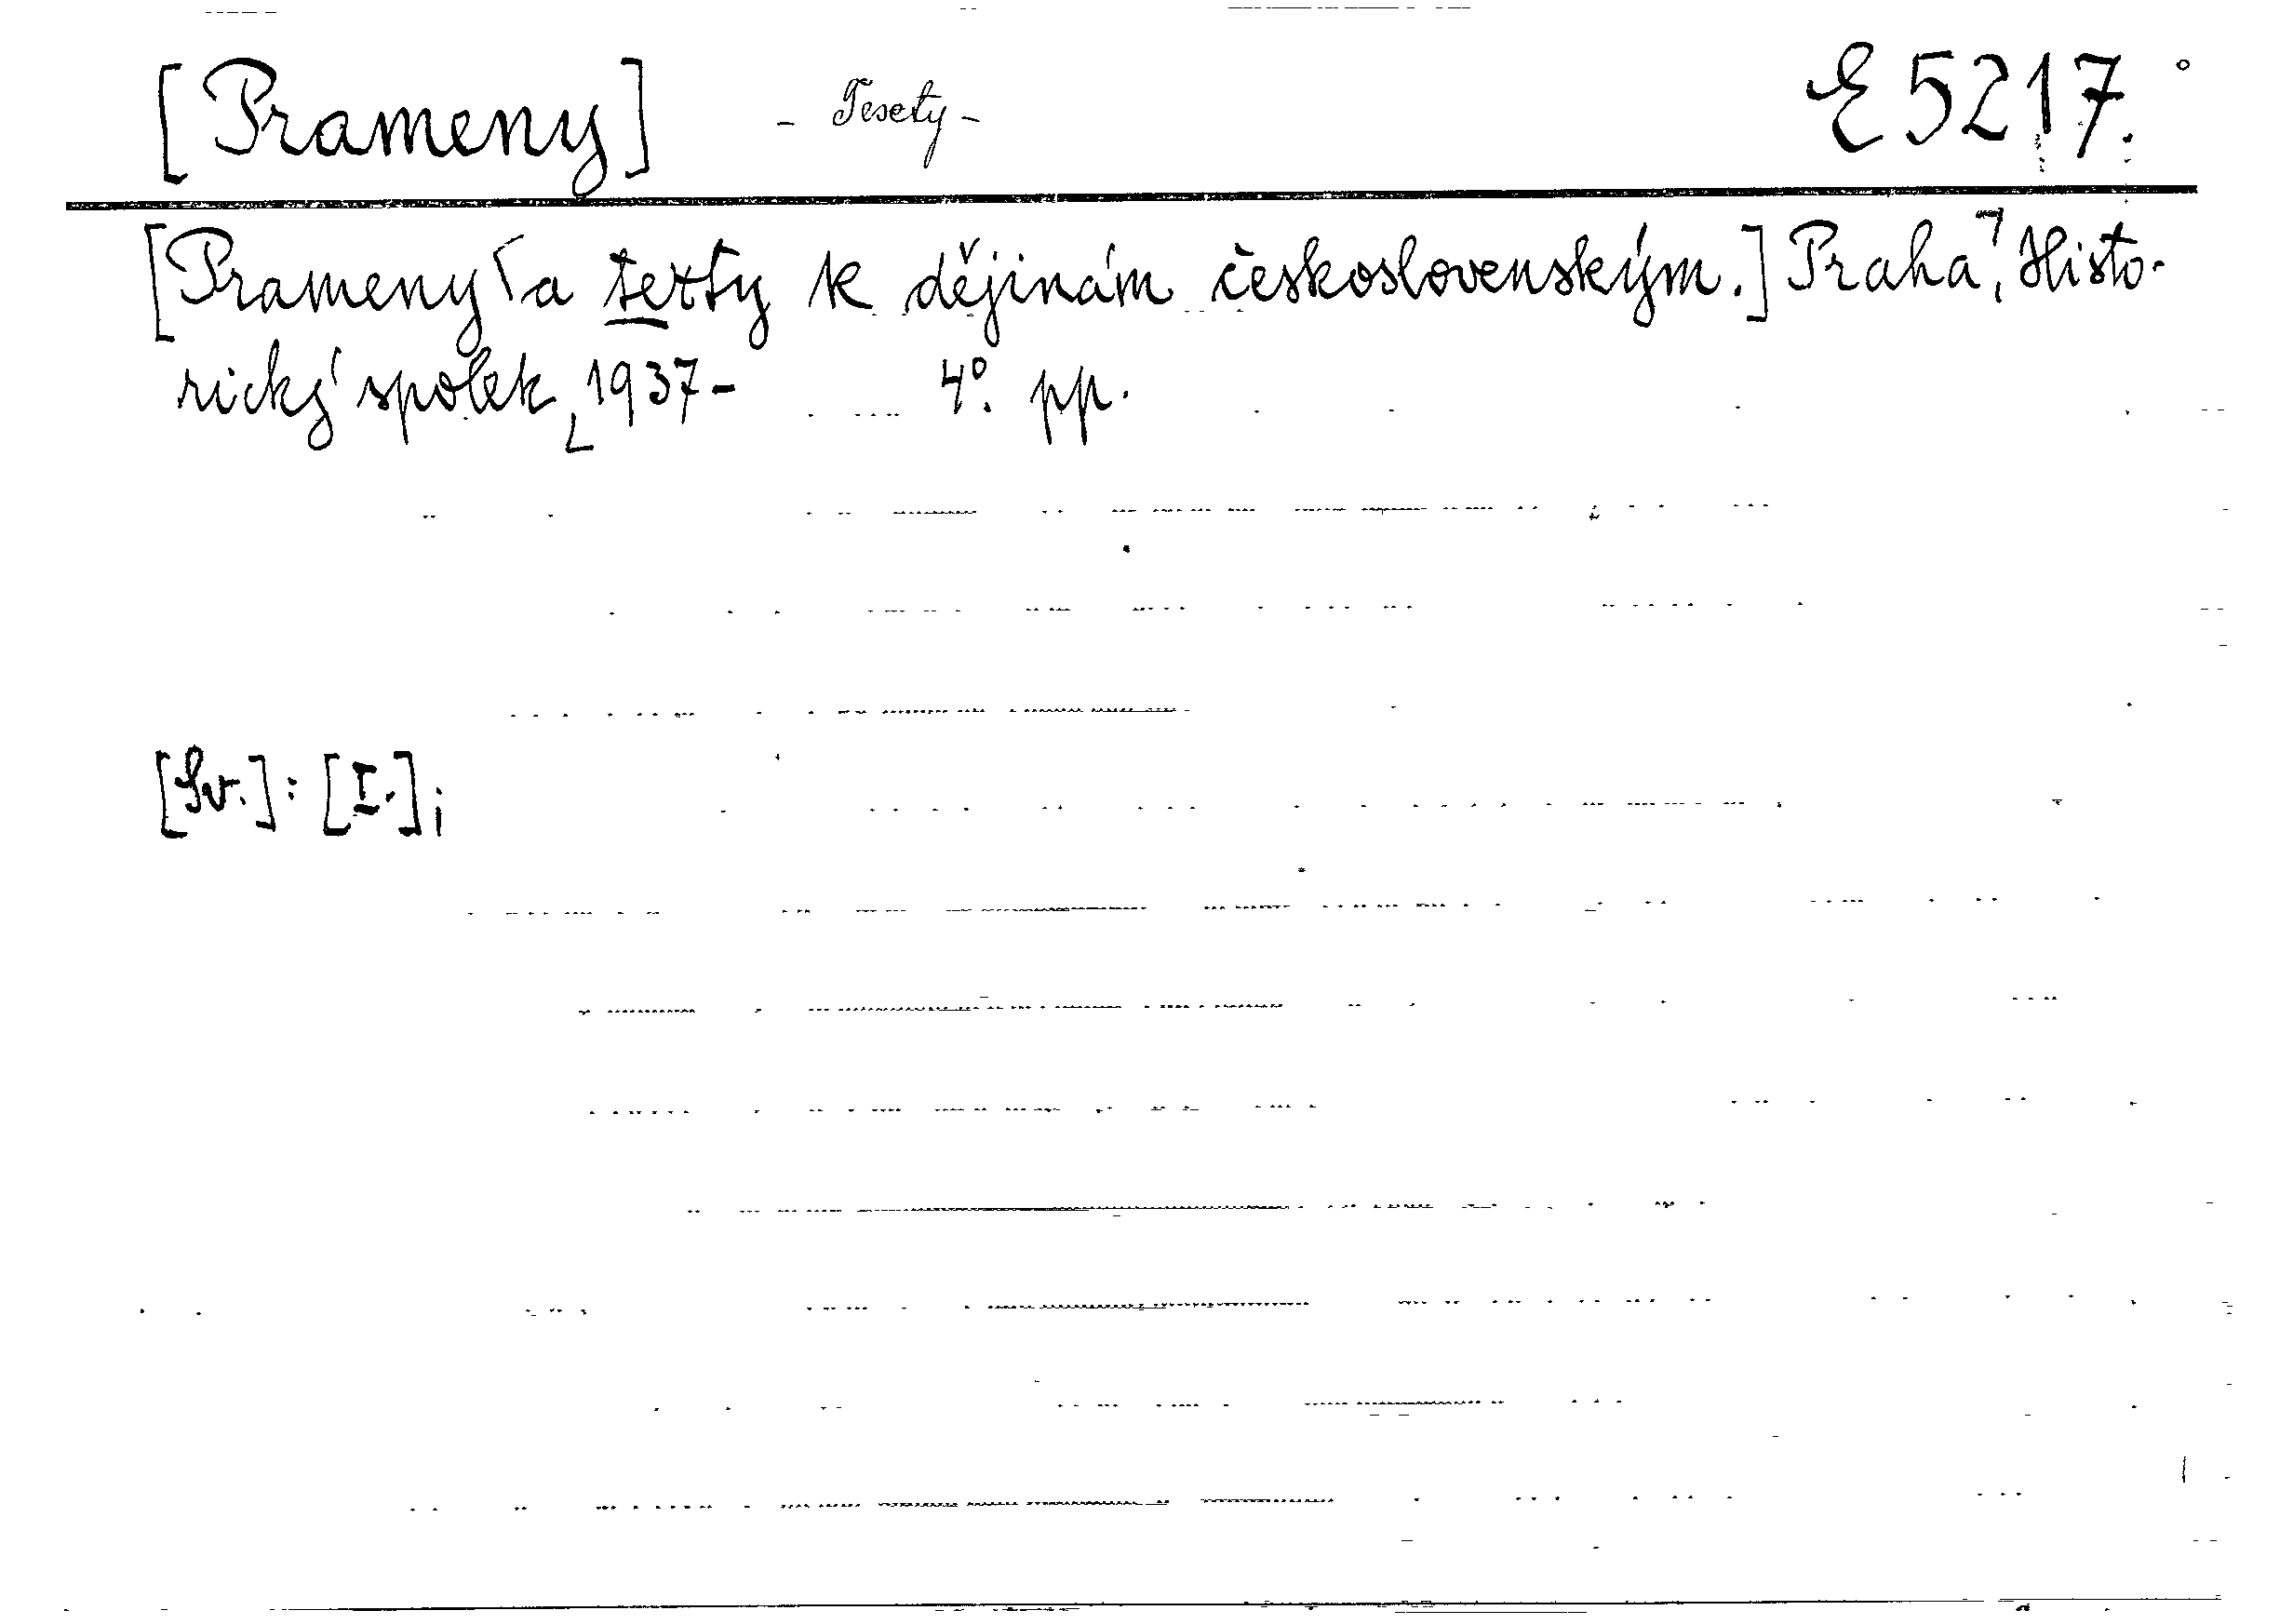 [Prameny] - Texty - E 5217.
[Prameny a texty k dějinám československým.] Praha, Histo-
rický spolek, 1937- 4°. pp.
[Sv.]: [I.];